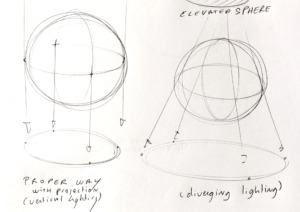 ELEVATED SPHERE
PROPER WAY
with projection
(vertical lighting)
(diverging lighting)